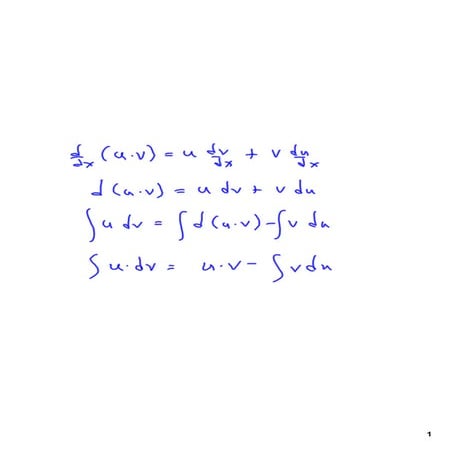 d/dx (u·v) = u dv/dx + v du/dx
d(u·v) = u dv + v du
∫u dv = ∫d(u·v) - ∫v du
∫u·dv = u·v - ∫v du
1